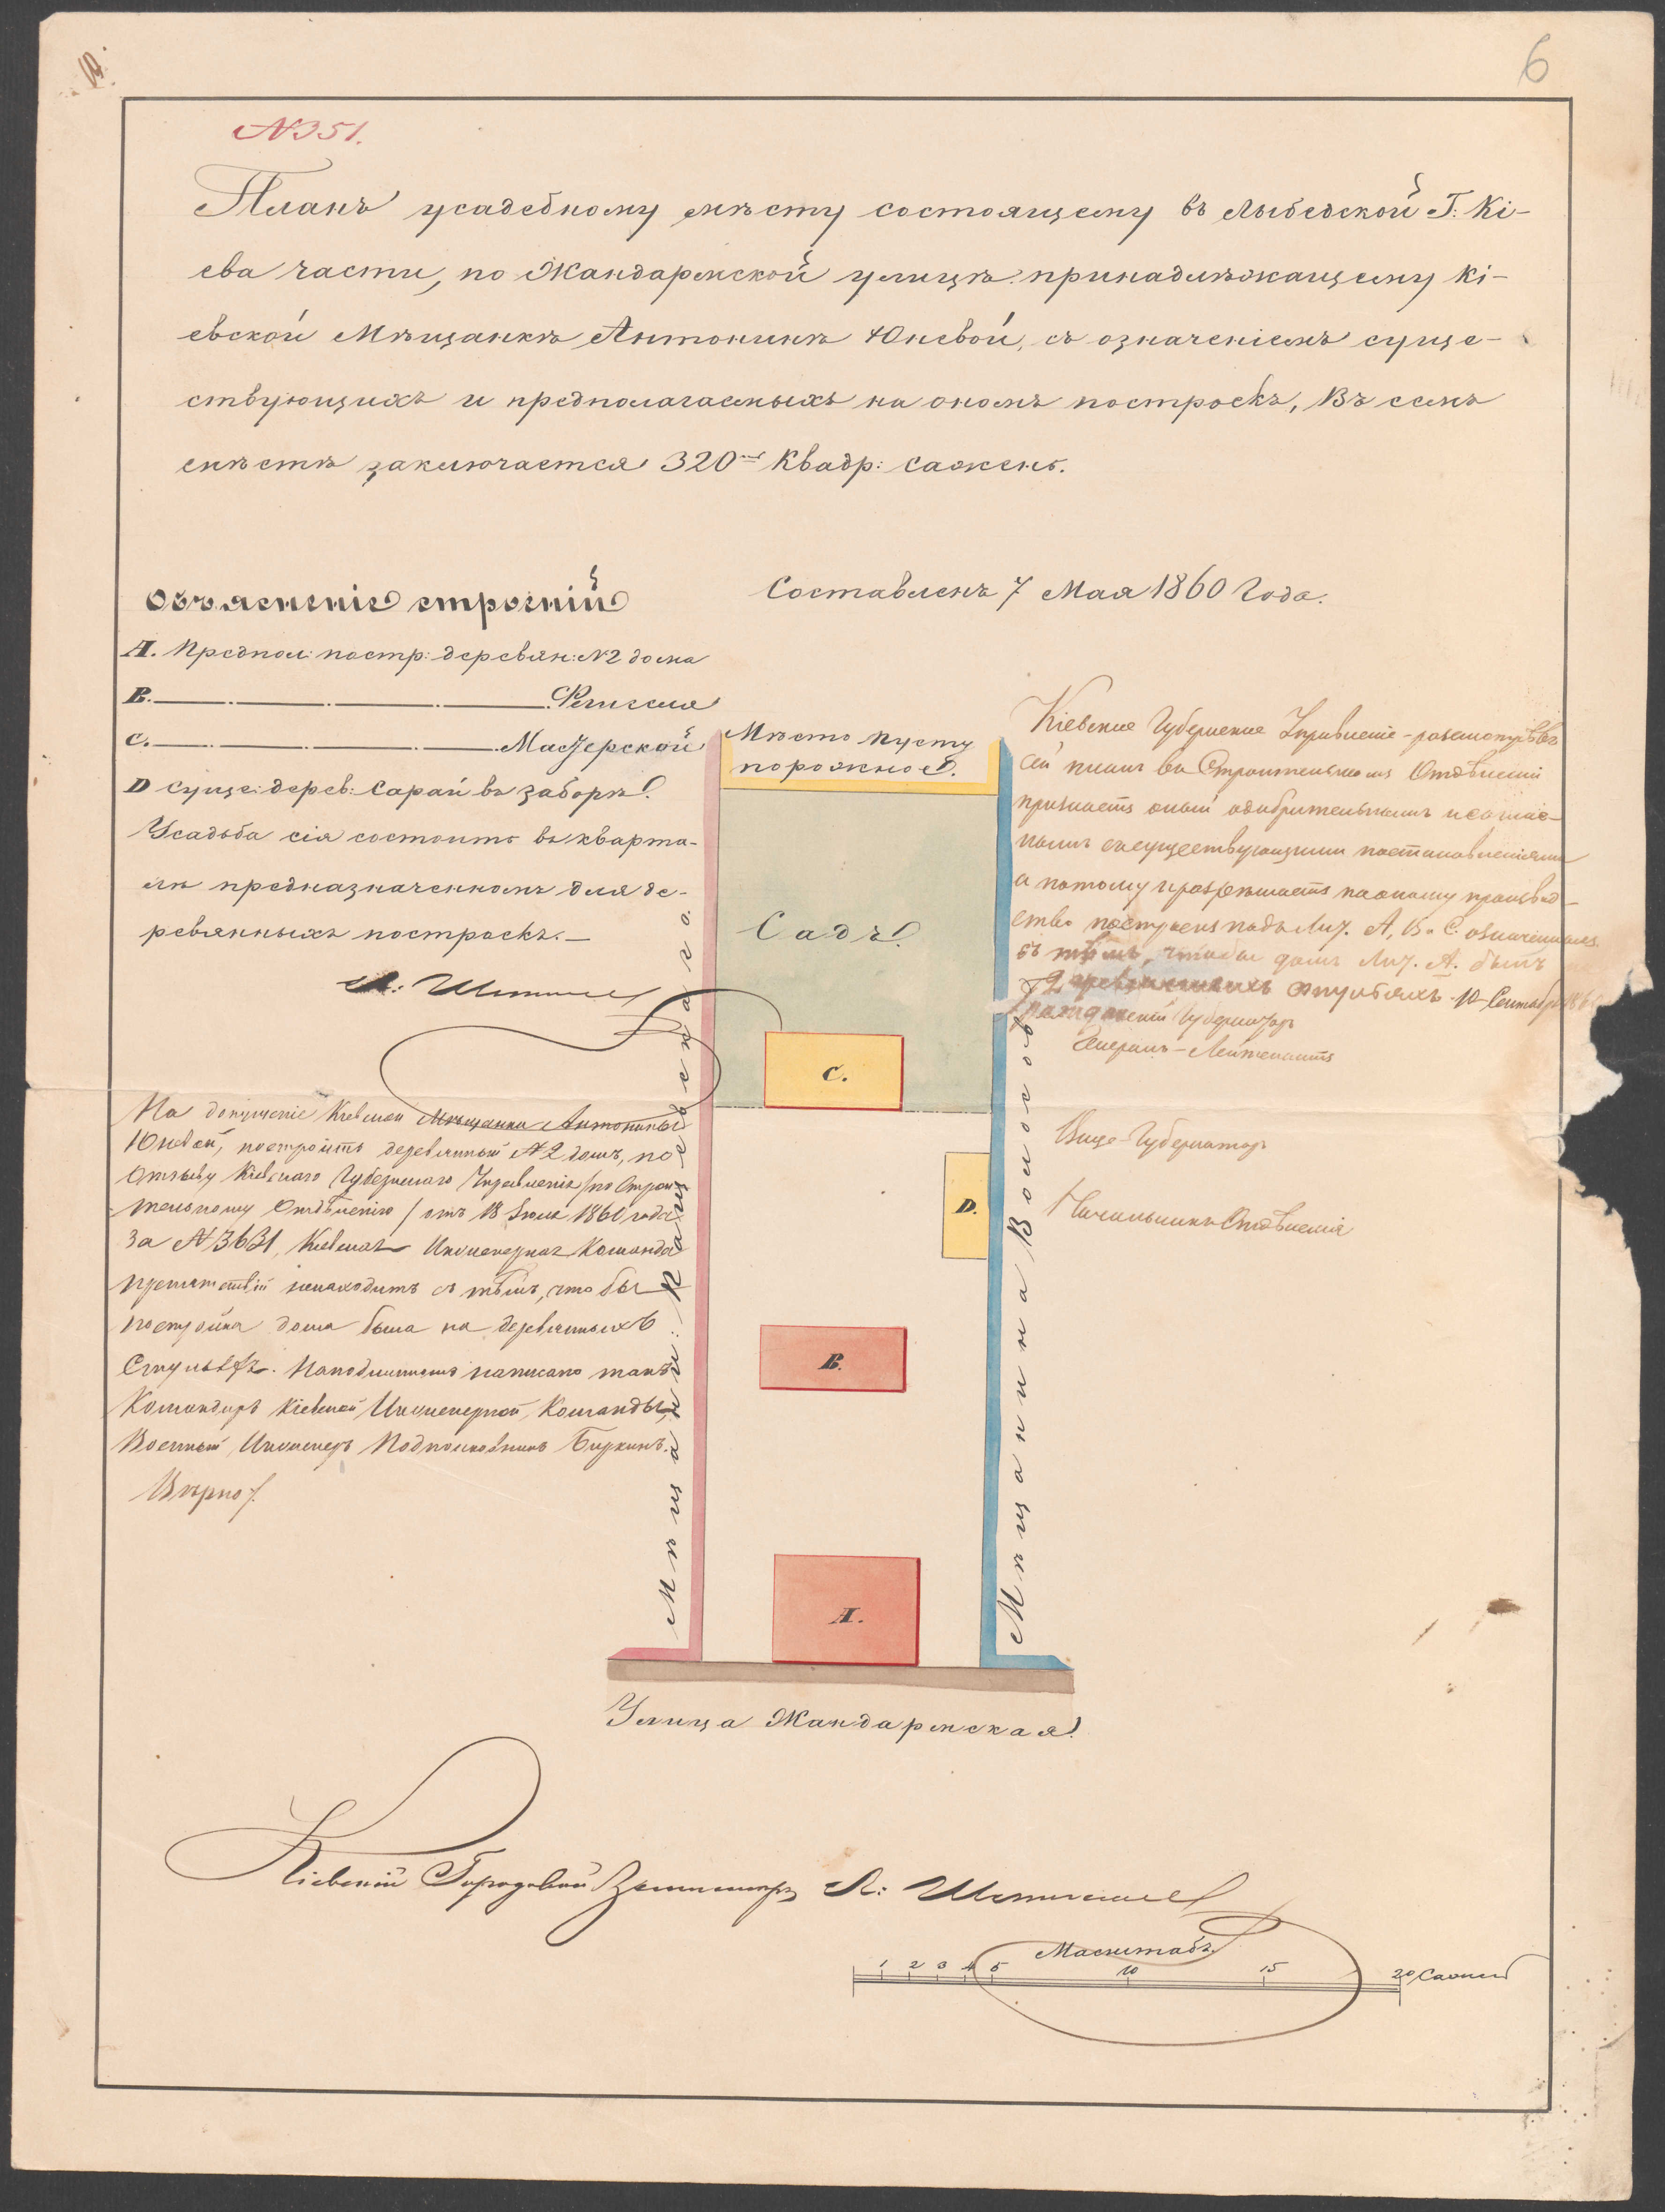 6
N351.
Планъ усадебному мѣсту состоящему въ Лыбедской Г: Кі-
ева части, по Жандармской улицѣ принадлѣжащему Кі-
евской Мѣщанкѣ Антонинѣ Юневой, съ означеніемъ суще-
ствующихъ и предполагаемыхъ на ономъ построекъ, Въ семъ
мѣстѣ заключается 320 Квадр: сажень.
Объясненіе строеній
Составленъ 7 Мая 1860 Года.
A. Предпол: постр: деревян: N2 дома
B. Флигеля
C. Мастерской
D Суще: дерев: Сарай въ заборѣ.
Усадьба сія состоитъ въ кварта-
лѣ предназначенномъ для де-
ревянныхъ построекъ.—
Мѣсто пусто
порожное.
Садъ
C.
D.
B.
A.
Кіевское Губернское Управленіе - разсмотрѣвъ
сей планъ въ Строительномъ Отдѣленіи
признаетъ оный одобрительнымъ и соглас-
нымъ съ существующими постановленіями
а потому и разрѣшаетъ по оному производ-
ство построекъ подъ Лит. А, В и С. означенныхъ
съ тѣмъ, чтобы домъ Лит. А. былъ
на деревянныхъ стульяхъ. 10 Сентября
Гражданскій Губернаторъ
Генералъ-Лейтенантъ
Вице-Губернаторъ
Начальникъ Отдѣленія
На допущеніе Кіевской Мѣщанки Антонины
Юневой, построить деревянный N2 домъ, по
Отзыву Кіевскаго Губернскаго Управленія /по Строи-
тельному Отдѣленію / отъ 18 Іюля 1860 года
за N3631, Кіевская Инженерная Команда
препятствій ненаходитъ съ тѣмъ, что бы
постройка дома была на деревянныхъ
Стульяхъ. На подлинномъ написано такъ:
Командиръ Кіевской Инженерной Команды,
Военный Инженеръ Подполковникъ
Вѣрно:
Мѣщанина
Мѣщанина
Улица Жандармская
Кіевскій Городовой Землемѣръ Л:
Масштабъ
1 2 3 4 5 10 15 20 Сажень